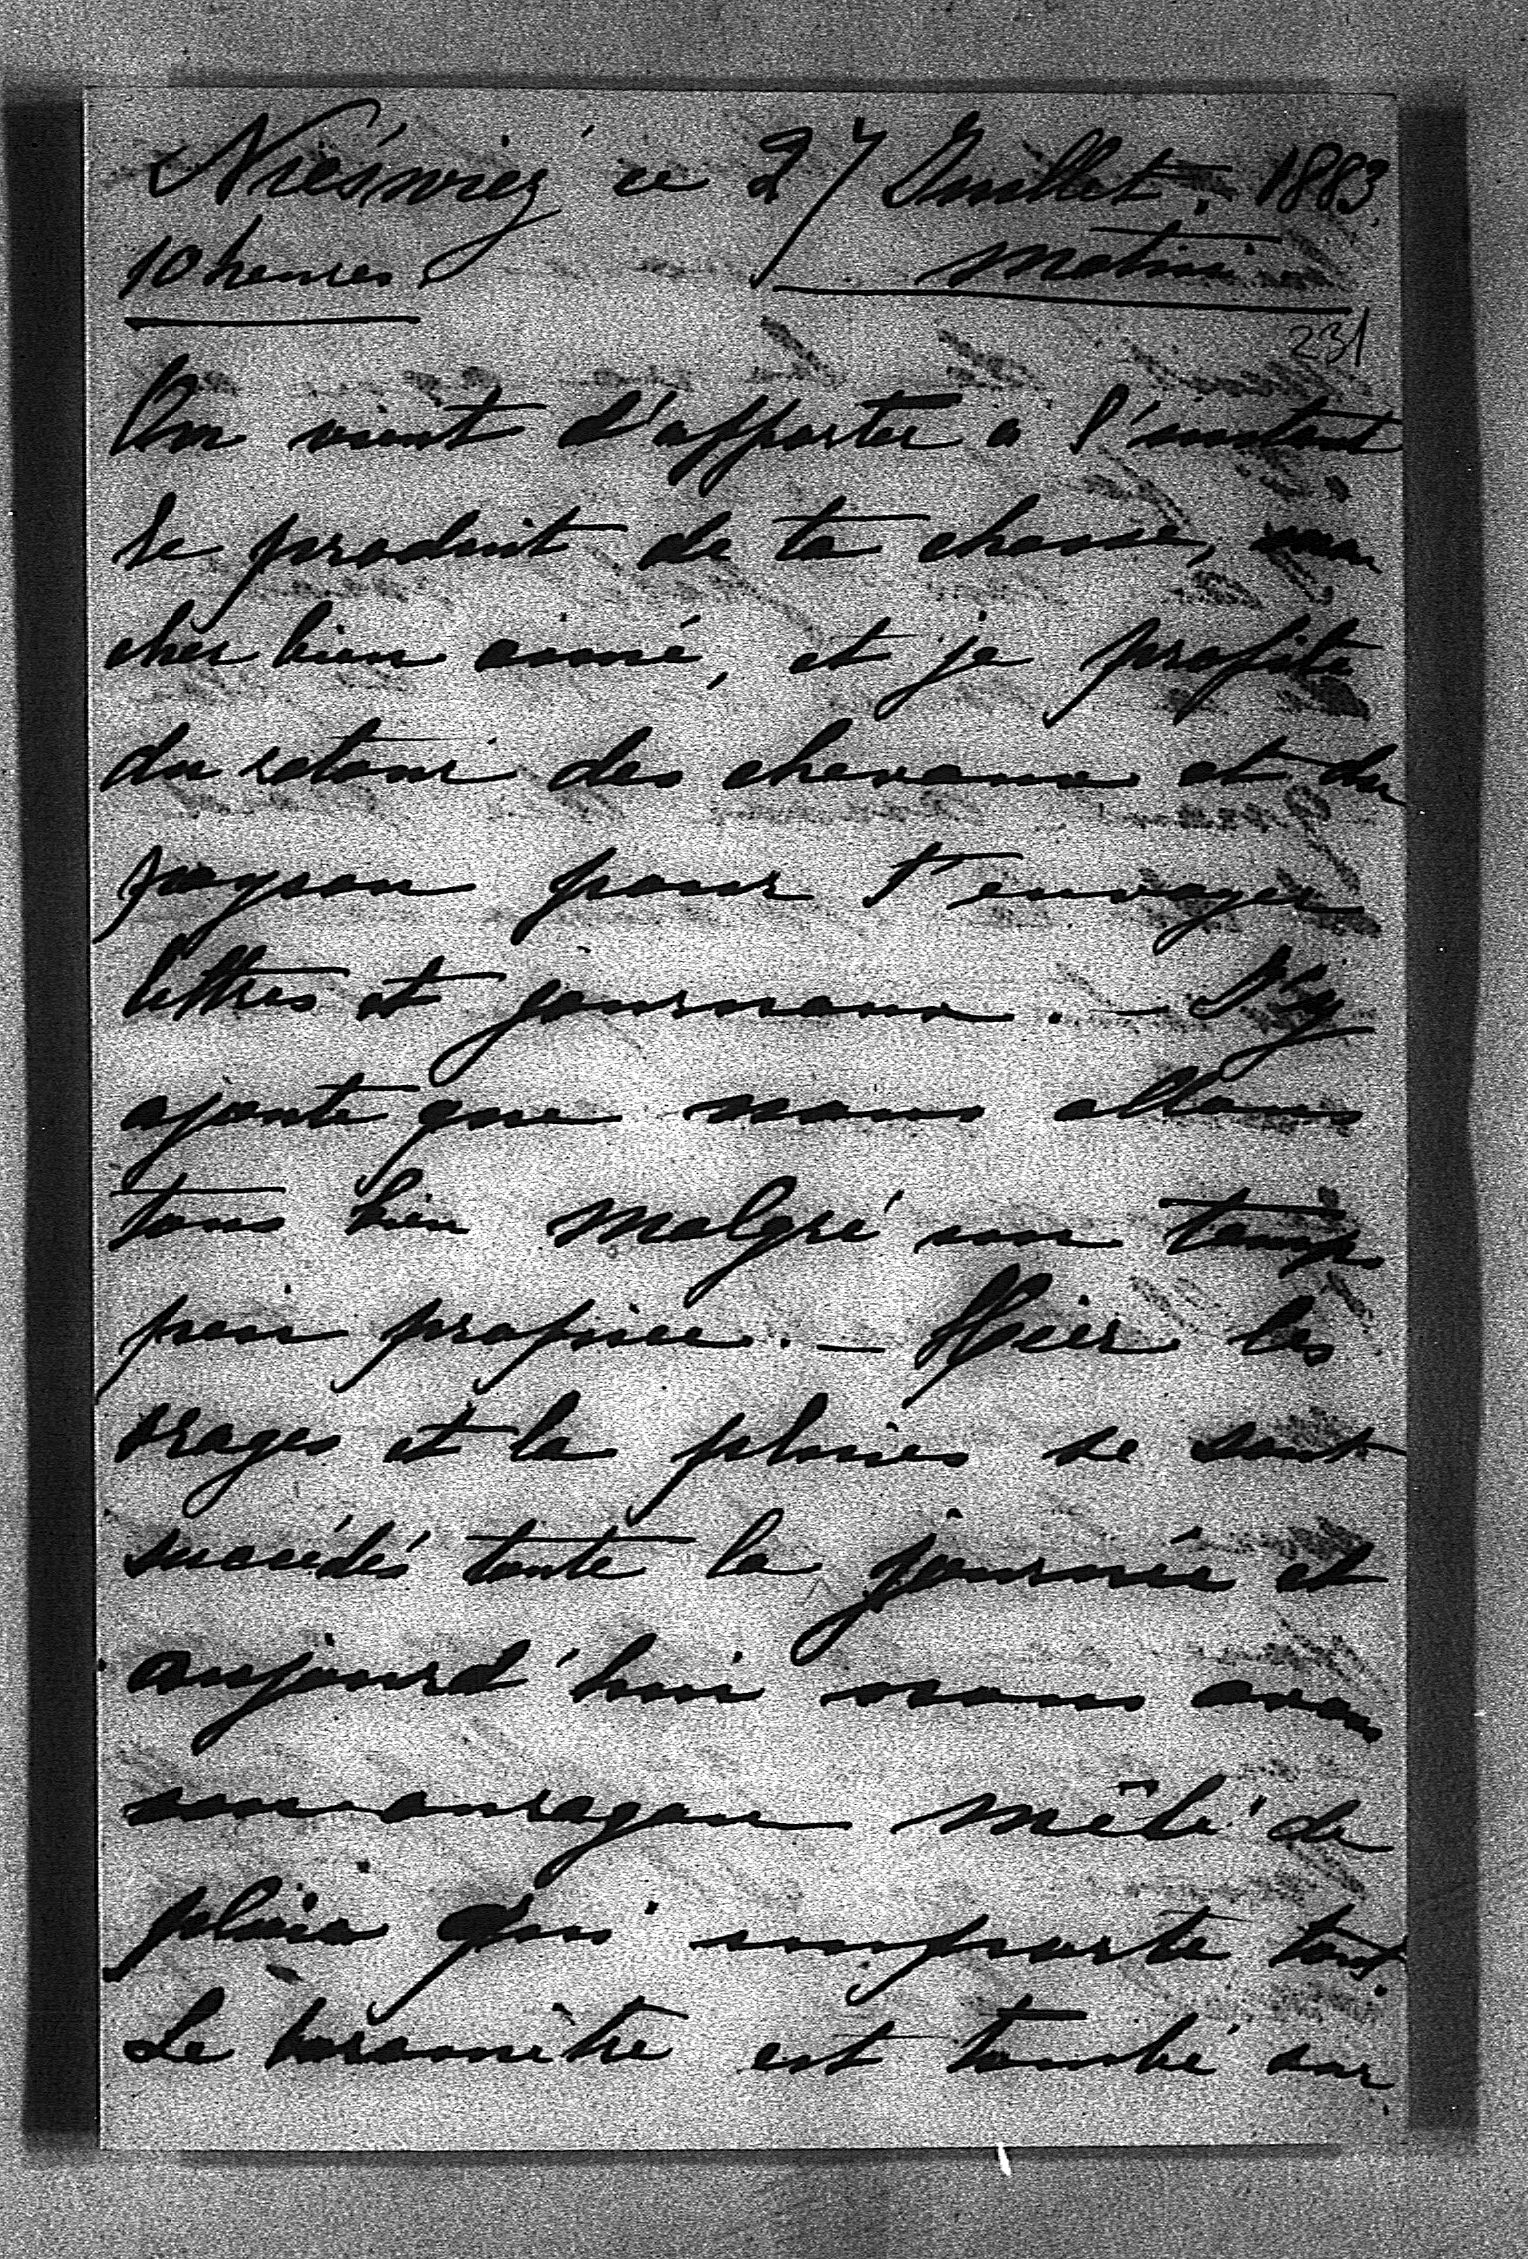 Nieśwież ce 27 Juillet. 1883.
10 heures matin
231
On vient d'apporter a l'instant
le produit de ta chasse, mon
cher bien aimé, et je profite
du retour des chevaux et du
paysan pour t'envoyer
lettres et journaux. — J'y
ajoute que nous allons
tous bien malgré un temps
peu propice. — Hier les
orages et la pluies se sont
succédés toute la journée et
aujourd'hui nous avons
un ouragan mêlé de
pluie qui emporte tout.
Le baromètre est tombé sur